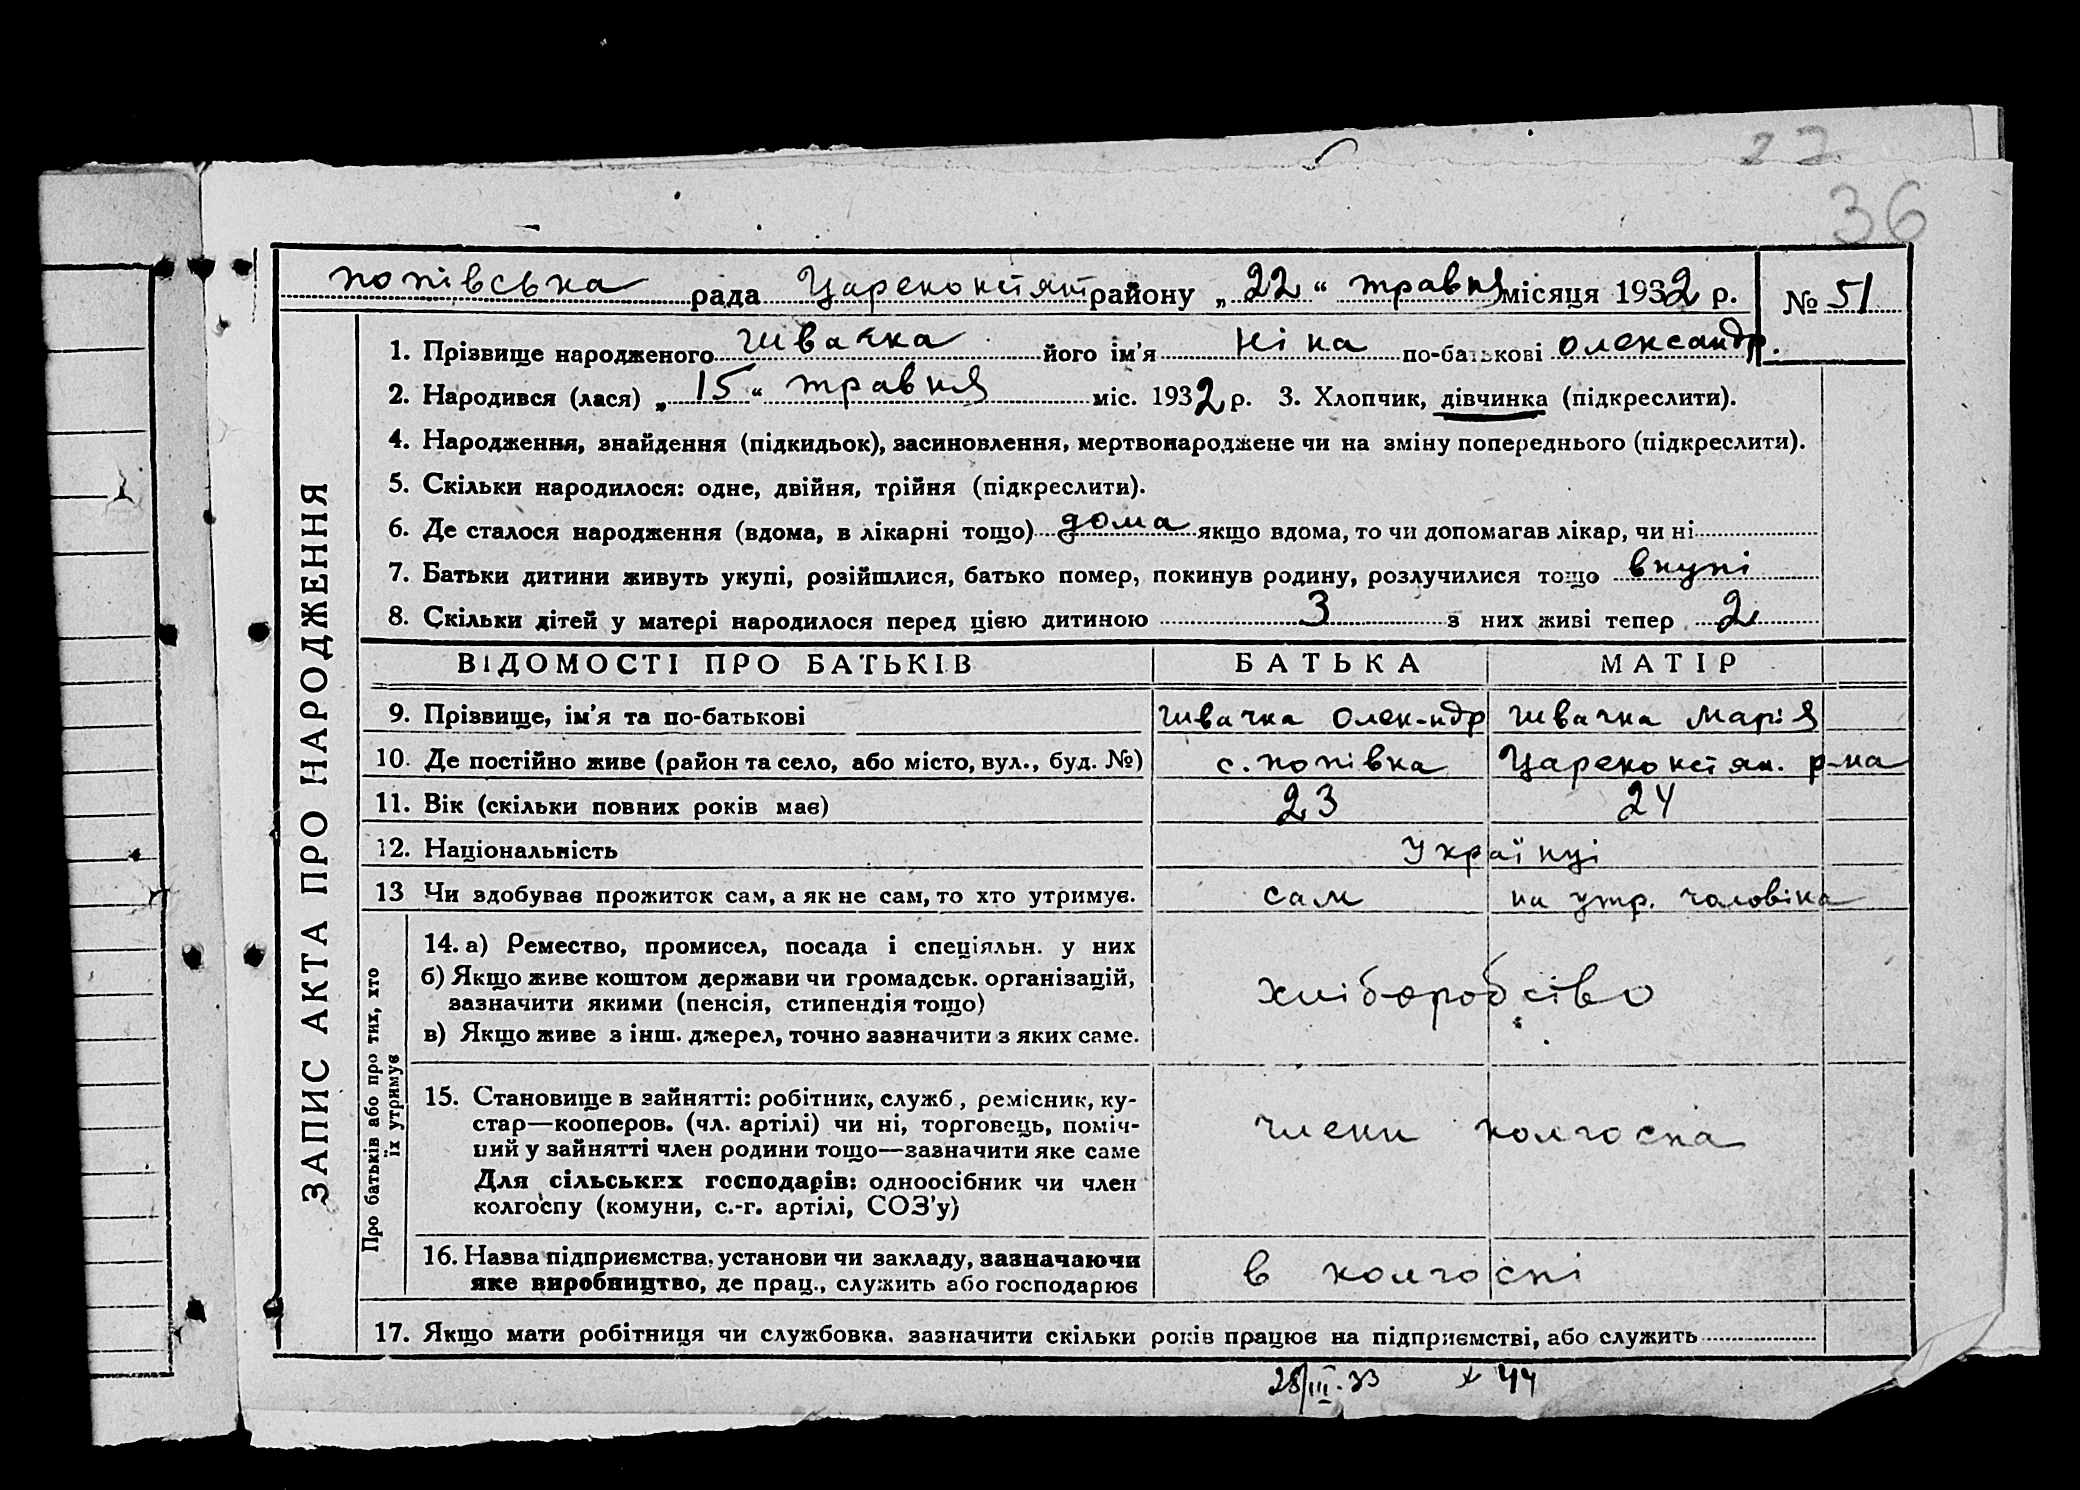 27
36
попівська рада Цареконстянт району „22“ травня місяця 1932 р. № 51
1. Прізвище народженого Швачка його ім’я Ніна по-батькові олександр.
2. Народився (лася) „15“ травня міс. 1932 р. 3. Хлопчик, дівчинка (підкреслити).
4. Народження, знайдення (підкидьок), засиновлення, мертвонароджене чи на зміну попереднього (підкреслити).
5. Скільки народилося: одне, двійня, трійня (підкреслити).
6. Де сталося народження (вдома, в лікарні тощо) дома якщо вдома, то чи допомагав лікар, чи ні
7. Батьки дитини живуть укупі, розійшлися, батько помер, покинув родину, розлучилися тощо вкупі
8. Скільки дітей у матері народилося перед цією дитиною 3 з них живі тепер 2
ВІДОМОСТІ ПРО БАТЬКІВ БАТЬКА МАТІР
9. Прізвище, ім’я та по-батькові Швачка Олек-ндр Швачка Марія
10. Де постійно живе (район та село, або місто, вул., буд. №) с. попівка Цареконстян. р-на
11. Вік (скільки повних років має) 23 24
12. Національність Українці
13 Чи здобуває прожиток сам, а як не сам, то хто утримує. сам на утр. чоловіка
14. а) Ремество, промисел, посада і спеціяльн. у них
б) Якщо живе коштом держави чи громадськ. організацій,
зазначити якими (пенсія, стипендія тощо) хліборобство
в) Якщо живе з інш. джерел, точно зазначити з яких саме.
15. Становище в зайнятті: робітник, служб., ремісник, ку-
стар—кооперов. (чл. артілі) чи ні, торговець, поміч- члени колгоспа
ний у зайнятті член родини тощо—зазначити яке саме
Для сільських господарів: одноосібник чи член
колгоспу (комуни, с.-г. артілі, СОЗ’у)
16. Назва підприємства, установи чи закладу, зазначаючи
яке виробництво, де прац., служить або господарює в колгоспі
17. Якщо мати робітниця чи службовка, зазначити скільки років працює на підприємстві, або служить
ЗАПИС АКТА ПРО НАРОДЖЕННЯ
Про батьків або про тих, хто
їх утримує
28/III.33 44